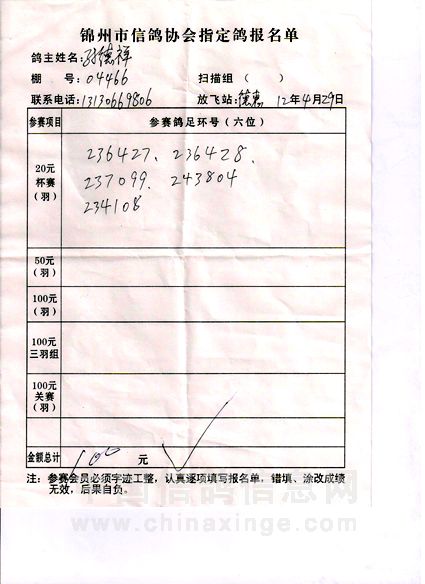 锦州市信鸽协会指定鸽报名单
鸽主姓名: 孙德祥
棚 号: 04466 扫描组 ( )
联系电话: 13130669806 放飞站: 德惠 12年4月29日
参赛项目 参赛鸽足环号(六位)
20元
杯赛
(羽)
236427、236428、
237099、243804
234108
50元
(羽)
100元
(羽)
100元
三羽组
100元
关赛
(羽)
金额总计 100 元
注: 参赛会员必须字迹工整,认真逐项填写报名单,错填、涂改成绩
无效,后果自负。
中国信鸽信息网
www.chinaxinge.com